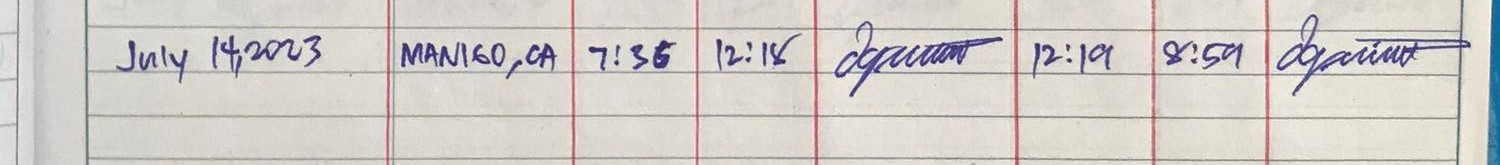 July 14,2023 MANIGO, CA 7:36 12:18 12:19 8:59